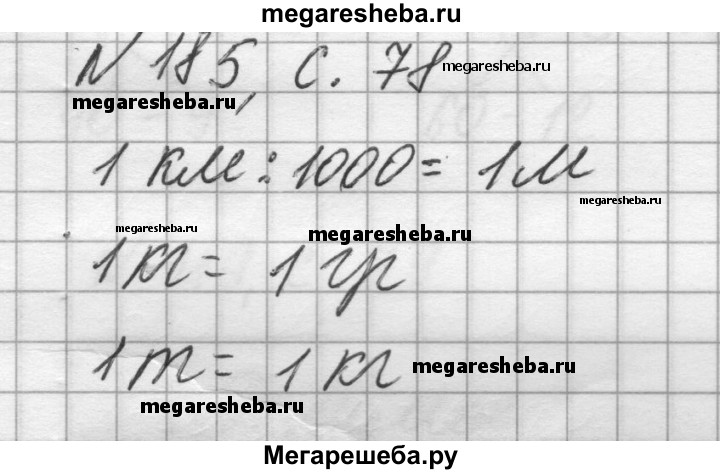 megaresheba.ru
N 185, с. 78 megaresheba.ru
megaresheba.ru
1 км : 1000 = 1 м
megaresheba.ru
megaresheba.ru
megaresheba.ru
1 кг = 1 гр
megaresheba.ru
1 т = 1 кг megaresheba.ru
megaresheba.ru
Мегарешеба.ру